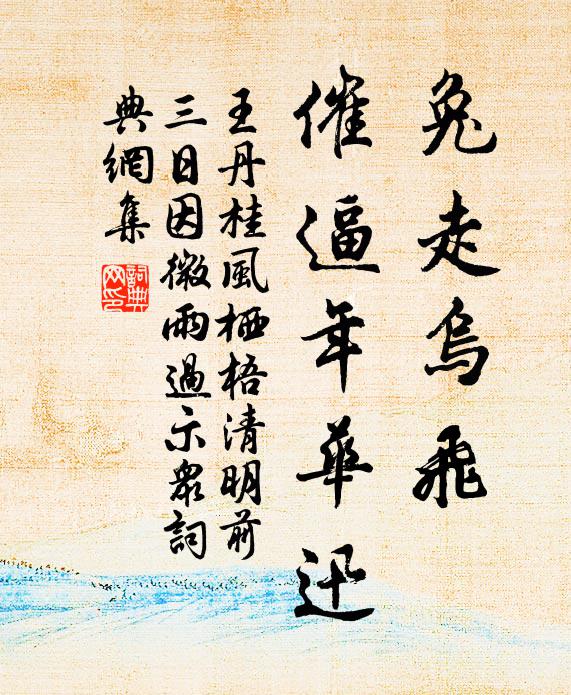 兔走烏飛
催逼年華迅
王丹桂風栖梧清明前
三日因微雨過示眾詞
典網集
詞典網印